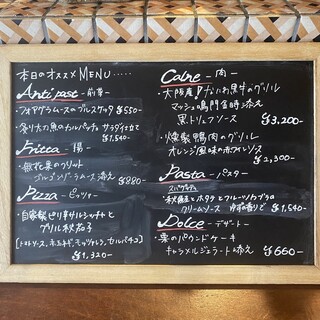 本日のオススメ MENU.....
Anti past -前菜-
・フォアグラムースのブルスケッタ ¥550-
・炙り大魚のカルパッチョ サラダ仕立て
¥1,540-
Fritto -揚-
ゴルゴンゾーラムース添え ¥880-
Pizza -ピッツァ-
・自家製ピリ辛サルシッチャと
グリル秋茄子
[トマトソース、モッツァレラ、セルバチコ]
¥1,320-
Calne -肉-
・大阪産 なにわ黒牛のグリル
マッシュ鳴門金時添え
黒トリュフソース ¥3,200-
・燻製鴨肉のグリル
オレンジ風味の赤ワインソース
¥2,300-
Pasta -パスタ-
スパゲティ
・秋鮭とホタテとフルーツカブラの
クリームソース ゆずの香りで ¥1,540-
Dolce -デザート-
・栗のパウンドケーキ
キャラメルジェラート添え ¥660-